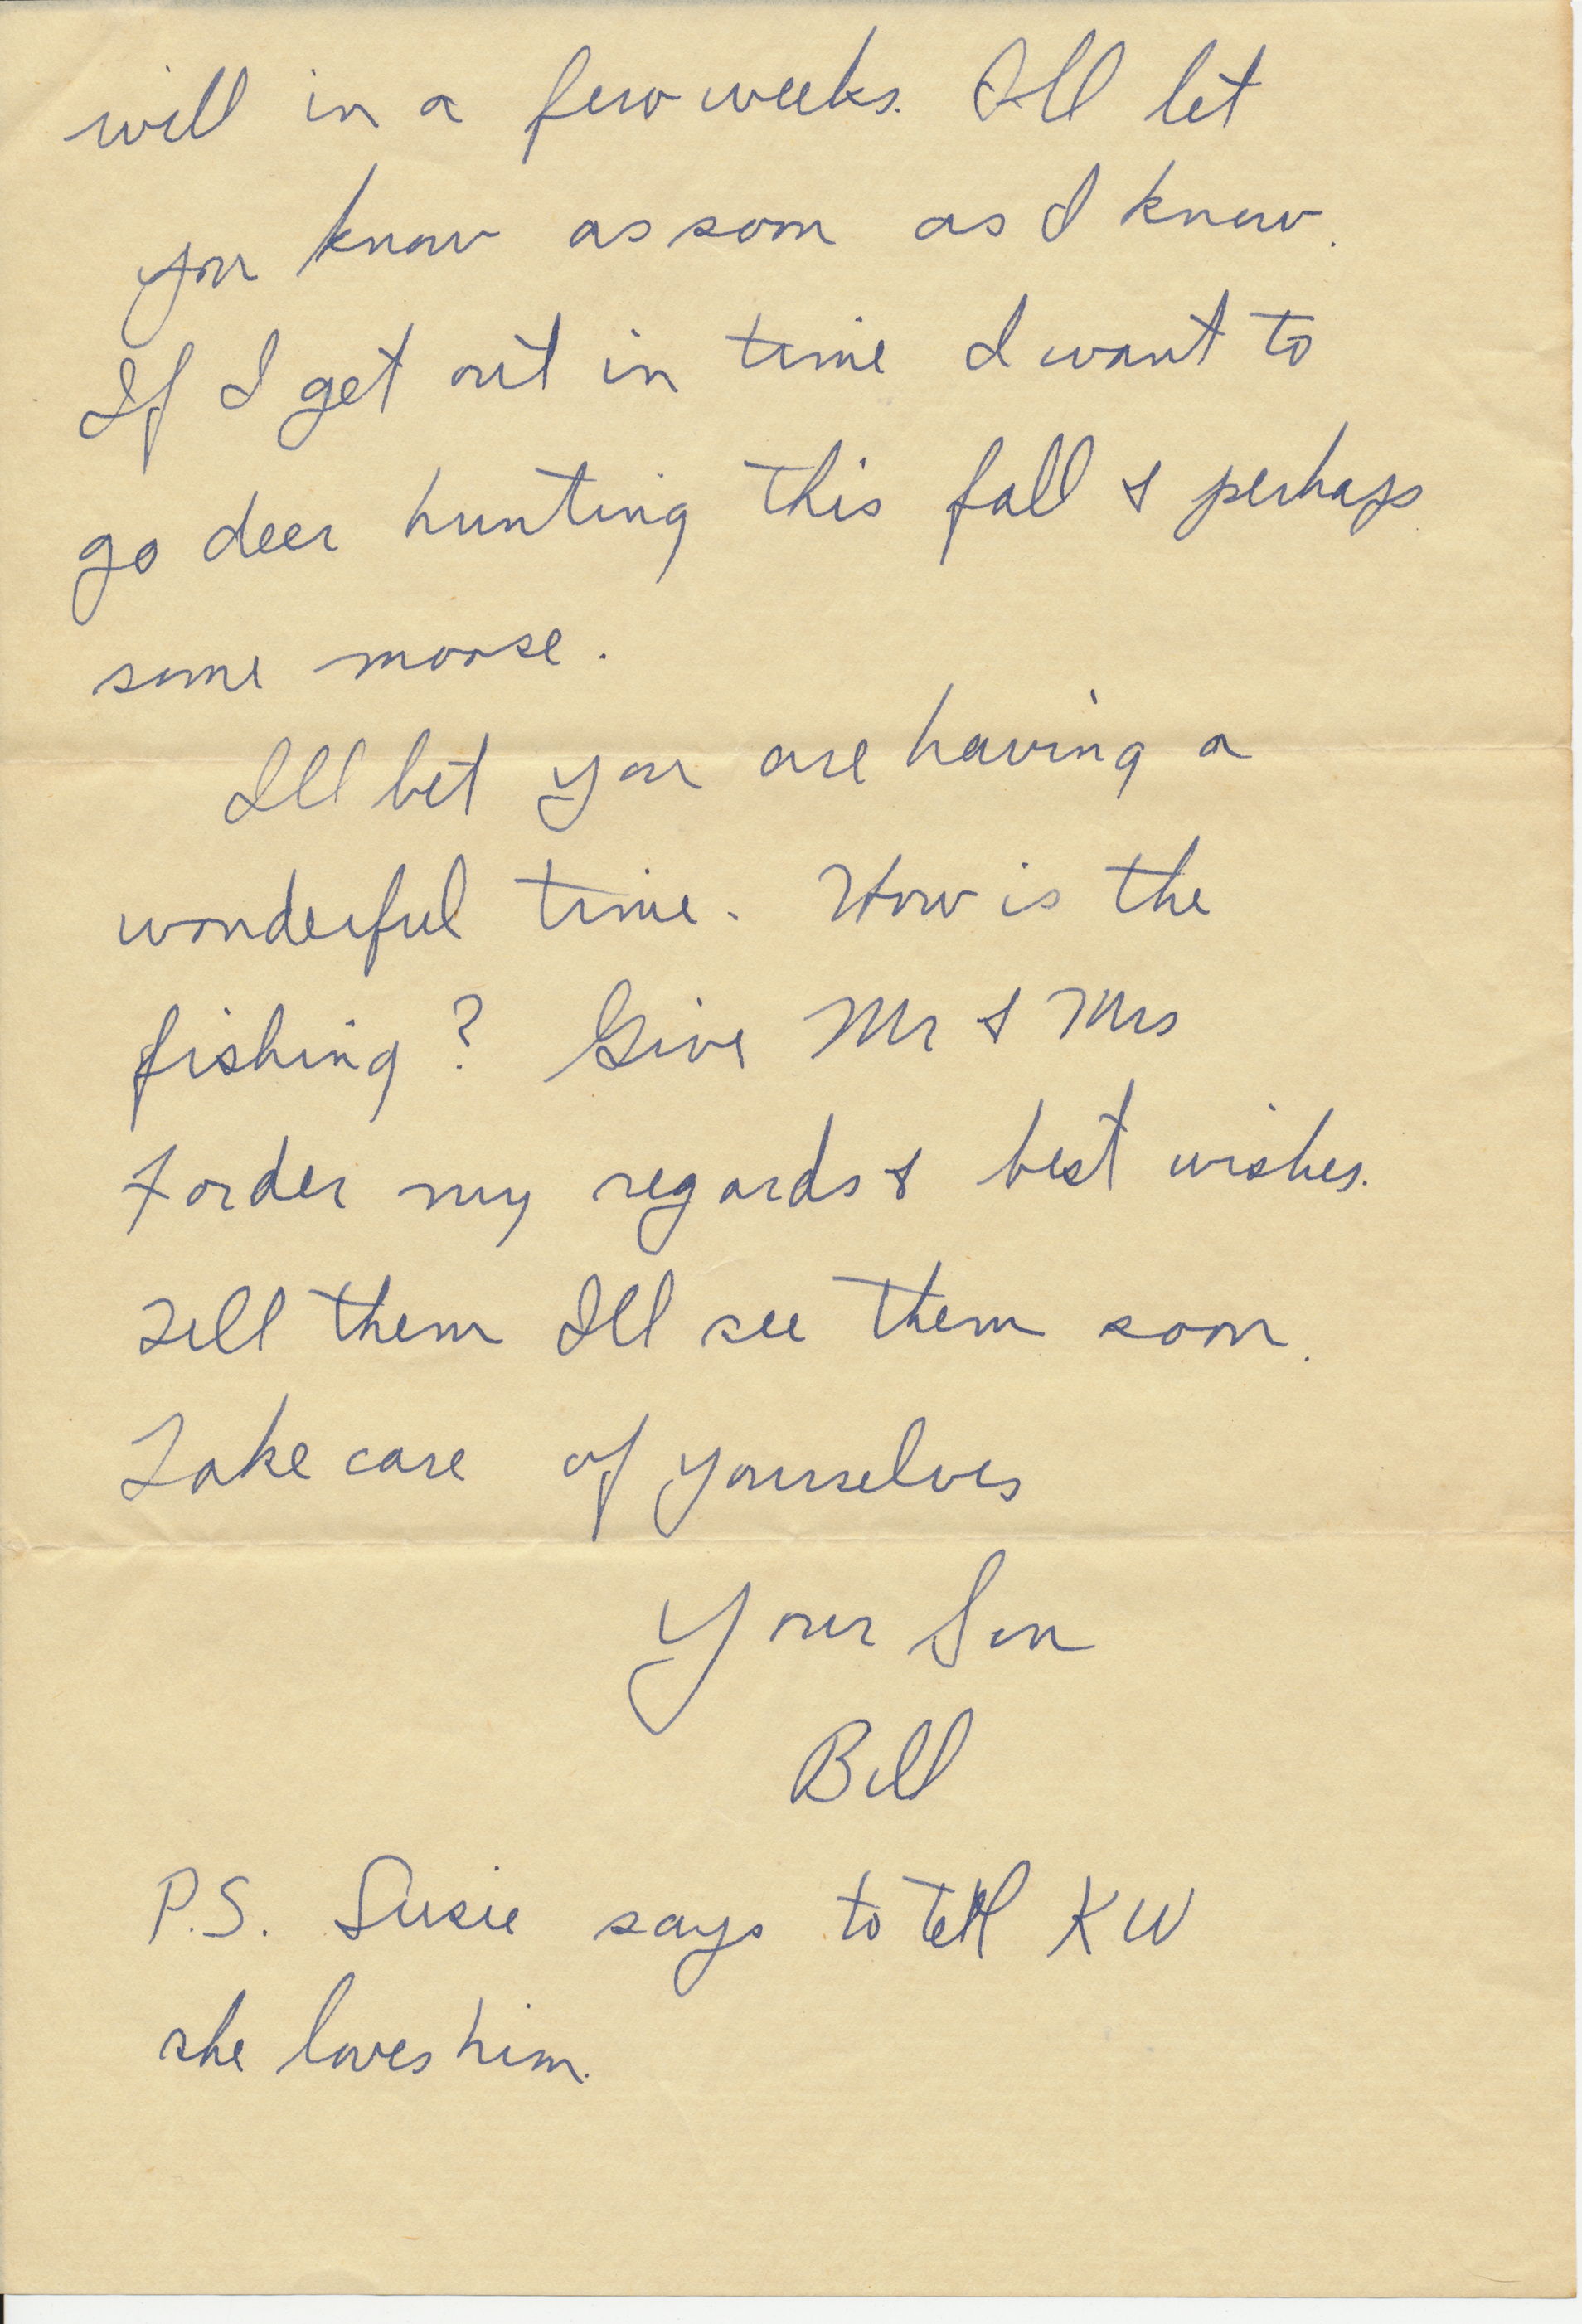 will in a few weeks. Ill let
you know as soon as I know.
If I get out in time I want to
go deer hunting this fall & perhaps
some moose.
Ill bet you are having a
wonderful time. How is the
fishing? Give Mr & Mrs
Forder my regards & best wishes.
Tell them Ill see them soon.
Take care of yourselves
Your Son
Bill
P.S. Susie says to tell KW
she loves him.